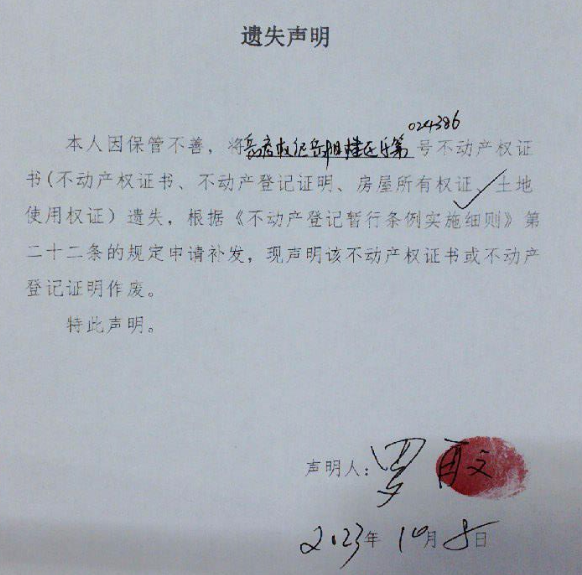 遗失声明
024386
本人因保管不善，将岳房权证岳阳楼区字第号不动产权证
书(不动产权证书、不动产登记证明、房屋所有权证、土地
使用权证）遗失，根据《不动产登记暂行条例实施细则》第
二十二条的规定申请补发，现声明该不动产权证书或不动产
登记证明作废。
特此声明。
声明人：罗再文
2023年10月8日